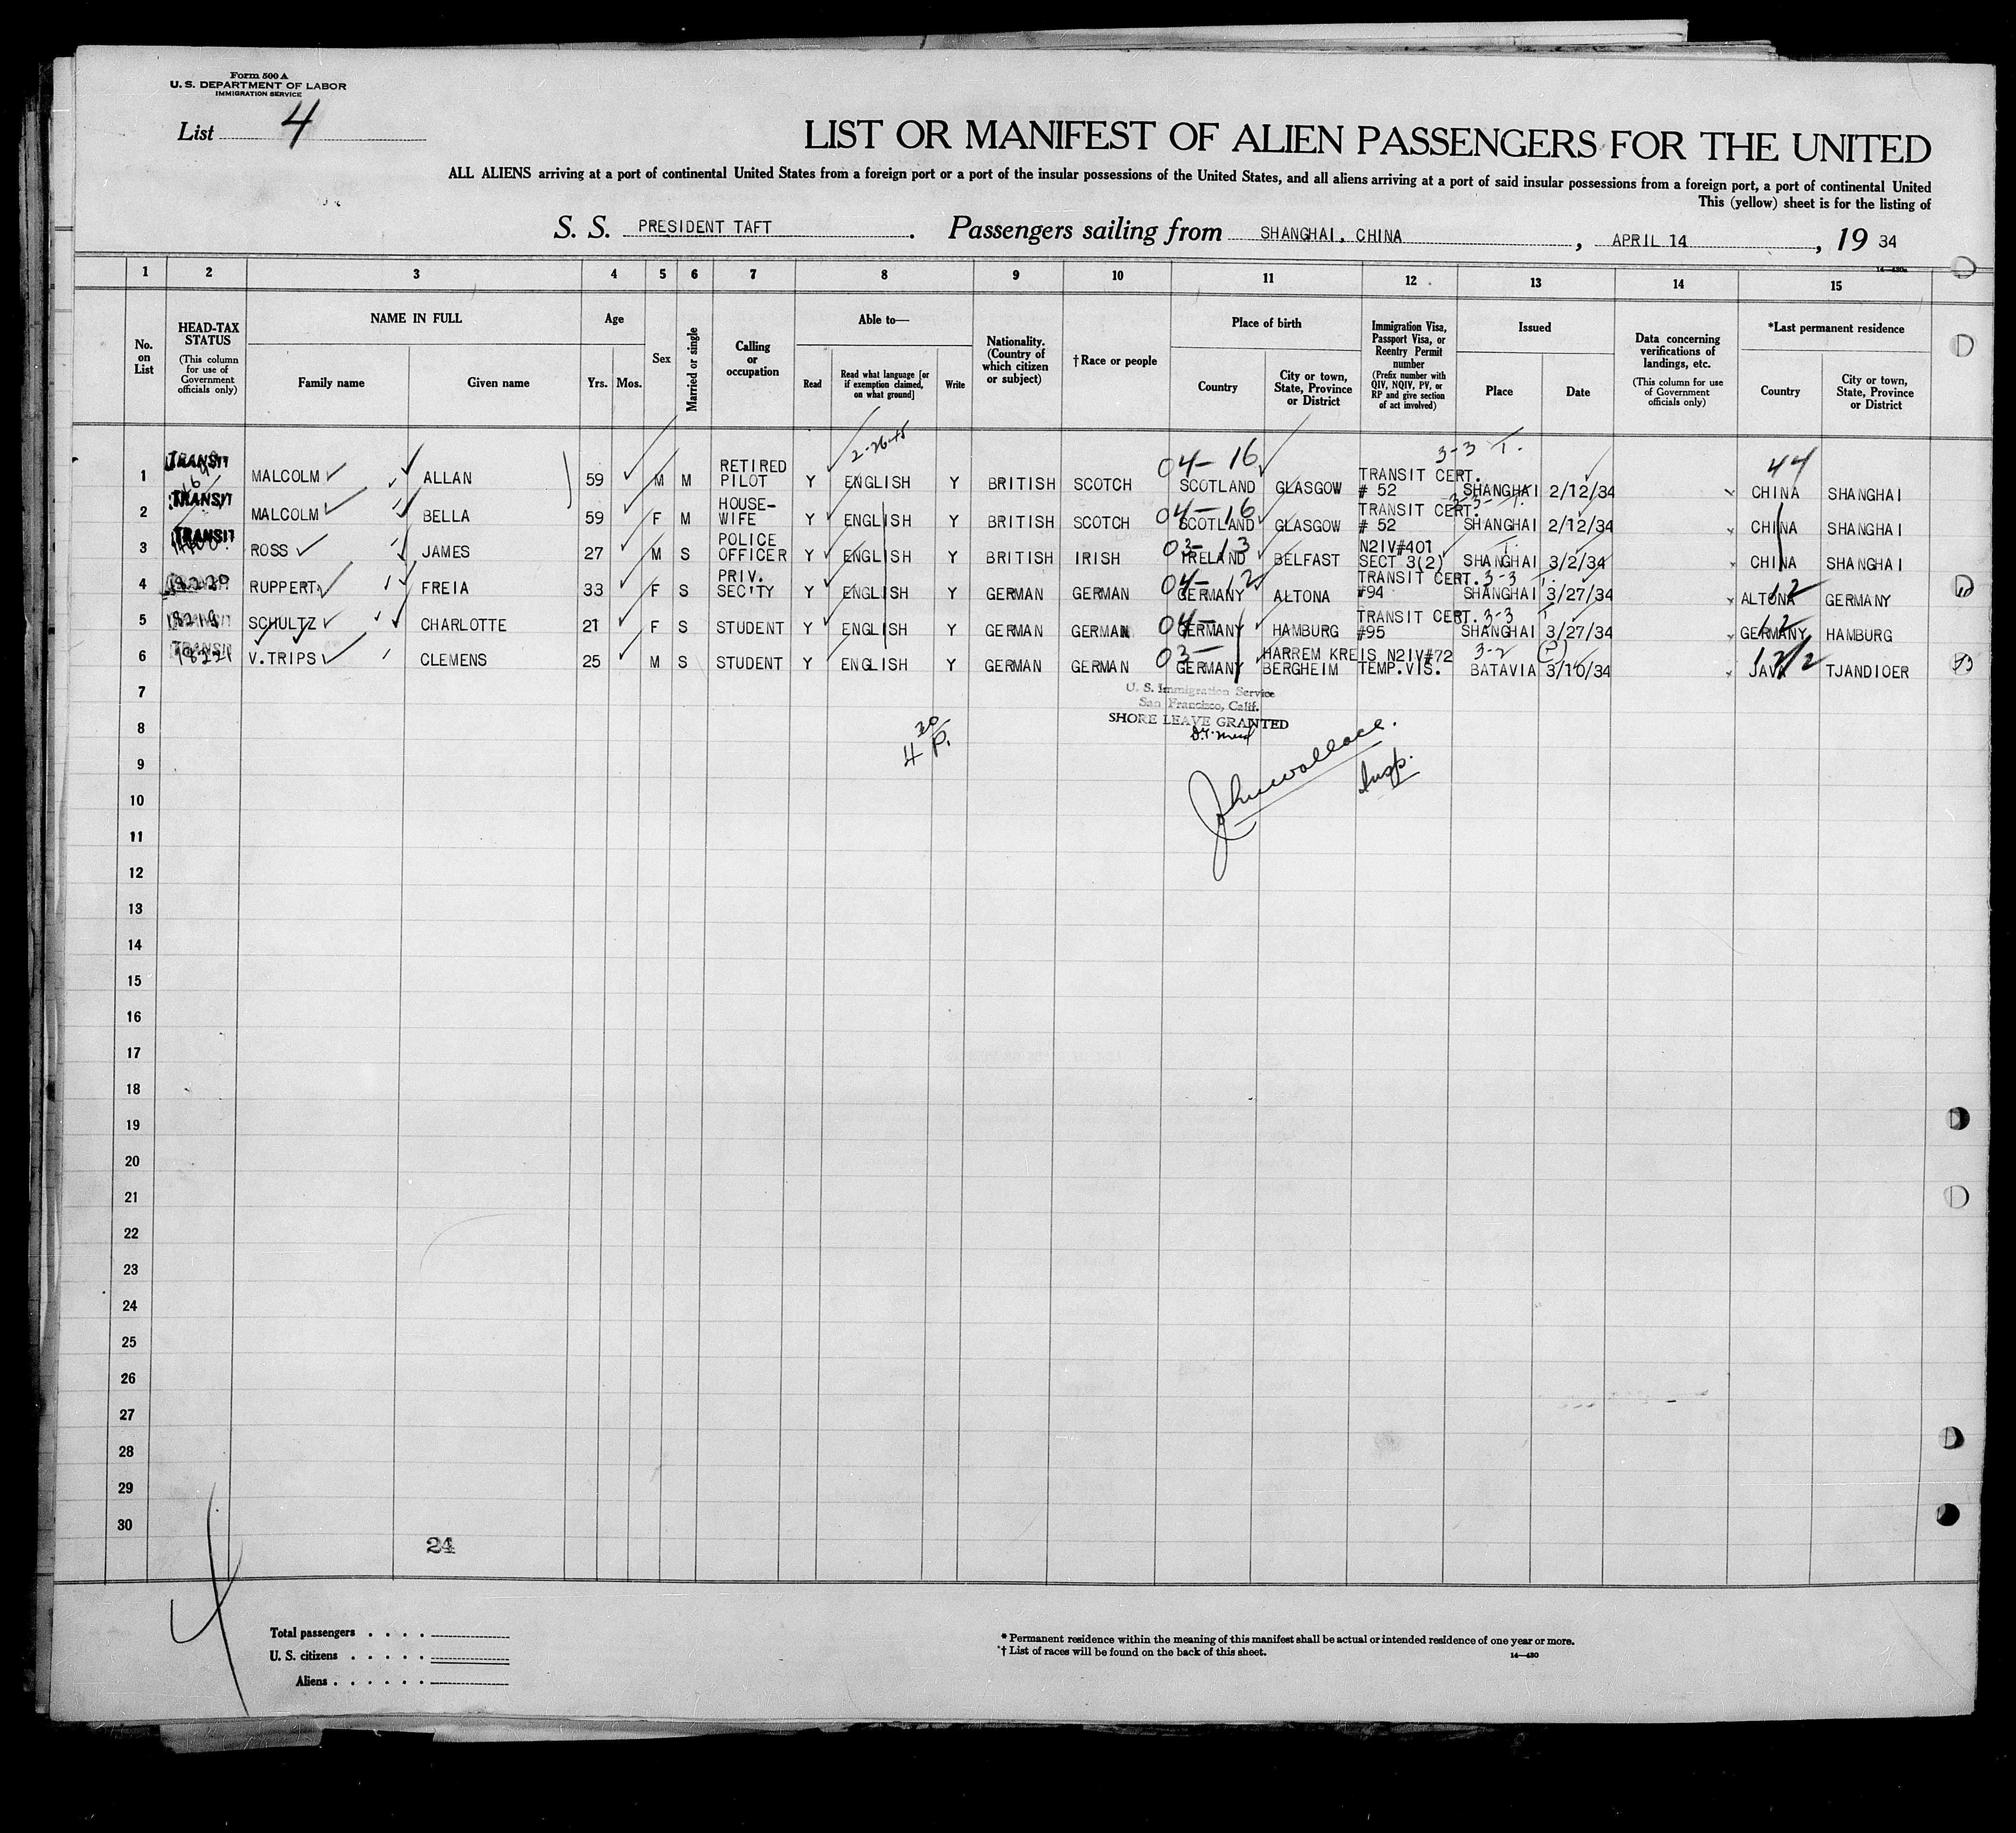 Form 500 A
U. S. DEPARTMENT OF LABOR
IMMIGRATION SERVICE
List 4
LIST OR MANIFEST OF ALIEN PASSENGERS FOR THE UNITED
ALL ALIENS arriving at a port of continental United States from a foreign port or a port of the insular possessions of the United States, and all aliens arriving at a port of said insular possessions from a foreign port, a port of continental United
This (yellow) sheet is for the listing of
S. S. PRESIDENT TAFT. Passengers sailing from SHANGHAI, CHINA, APRIL 14, 19 34
14—430a
1 2 3 4 5 6 7 8 9 10 11 12 13 14 15
No. on List
HEAD-TAX STATUS (This column for use of Government officials only)
NAME IN FULL
Family name
Given name
Age
Yrs. Mos.
Sex
Married or single
Calling or occupation
Able to—
Read
Read what language [or if exemption claimed, on what ground]
Write
Nationality. (Country of which citizen or subject)
†Race or people
Place of birth
Country
City or town, State, Province or District
Immigration Visa, Passport Visa, or Reentry Permit number (Prefix number with QIV, NQIV, PV, or RP and give section of act involved)
Issued
Place
Date
Data concerning verifications of landings, etc. (This column for use of Government officials only)
*Last permanent residence
Country
City or town, State, Province or District
2-26-45
1 TRANSIT MALCOLM ALLAN 59 M M RETIRED PILOT Y ENGLISH Y BRITISH SCOTCH 04-16 SCOTLAND GLASGOW TRANSIT CERT. # 52 3-3 T. SHANGHAI 2/12/34 44 CHINA SHANGHAI
2 TRANSIT MALCOLM BELLA 59 F M HOUSE-WIFE Y ENGLISH Y BRITISH SCOTCH 04-16 SCOTLAND GLASGOW TRANSIT CERT. # 52 3-3-T. SHANGHAI 2/12/34 CHINA SHANGHAI
3 TRANSIT ROSS JAMES 27 M S POLICE OFFICER Y ENGLISH Y BRITISH IRISH 03-13 IRELAND BELFAST N2IV#401 SECT 3(2) T. SHANGHAI 3/2/34 CHINA SHANGHAI
4 18220 RUPPERT FREIA 33 F S PRIV. SEC'TY Y ENGLISH Y GERMAN GERMAN 04-12 GERMANY ALTONA TRANSIT CERT. #94 3-3 T. SHANGHAI 3/27/34 12 ALTONA GERMANY
5 TRANSIT 18219 SCHULTZ CHARLOTTE 21 F S STUDENT Y ENGLISH Y GERMAN GERMAN 04- GERMANY HAMBURG TRANSIT CERT. #95 3-3 T SHANGHAI 3/27/34 12 GERMANY HAMBURG
6 TRANSIT 18221 V.TRIPS CLEMENS 25 M S STUDENT Y ENGLISH Y GERMAN GERMAN 03- GERMANY HARREM KREIS BERGHEIM N2IV#72 TEMP.VIS. 3-2 (P) BATAVIA 3/10/34 JAVA TJANDIOER
7
U. S. Immigration Service
San Francisco, Calif.
SHORE LEAVE GRANTED
8
4 30 P.
John Wallace.
Insp.
9
10
11
12
13
14
15
16
17
18
19
20
21
22
23
24
25
26
27
28
29
30
24
4
Total passengers
U. S. citizens
Aliens
* Permanent residence within the meaning of this manifest shall be actual or intended residence of one year or more.
† List of races will be found on the back of this sheet.
14—430